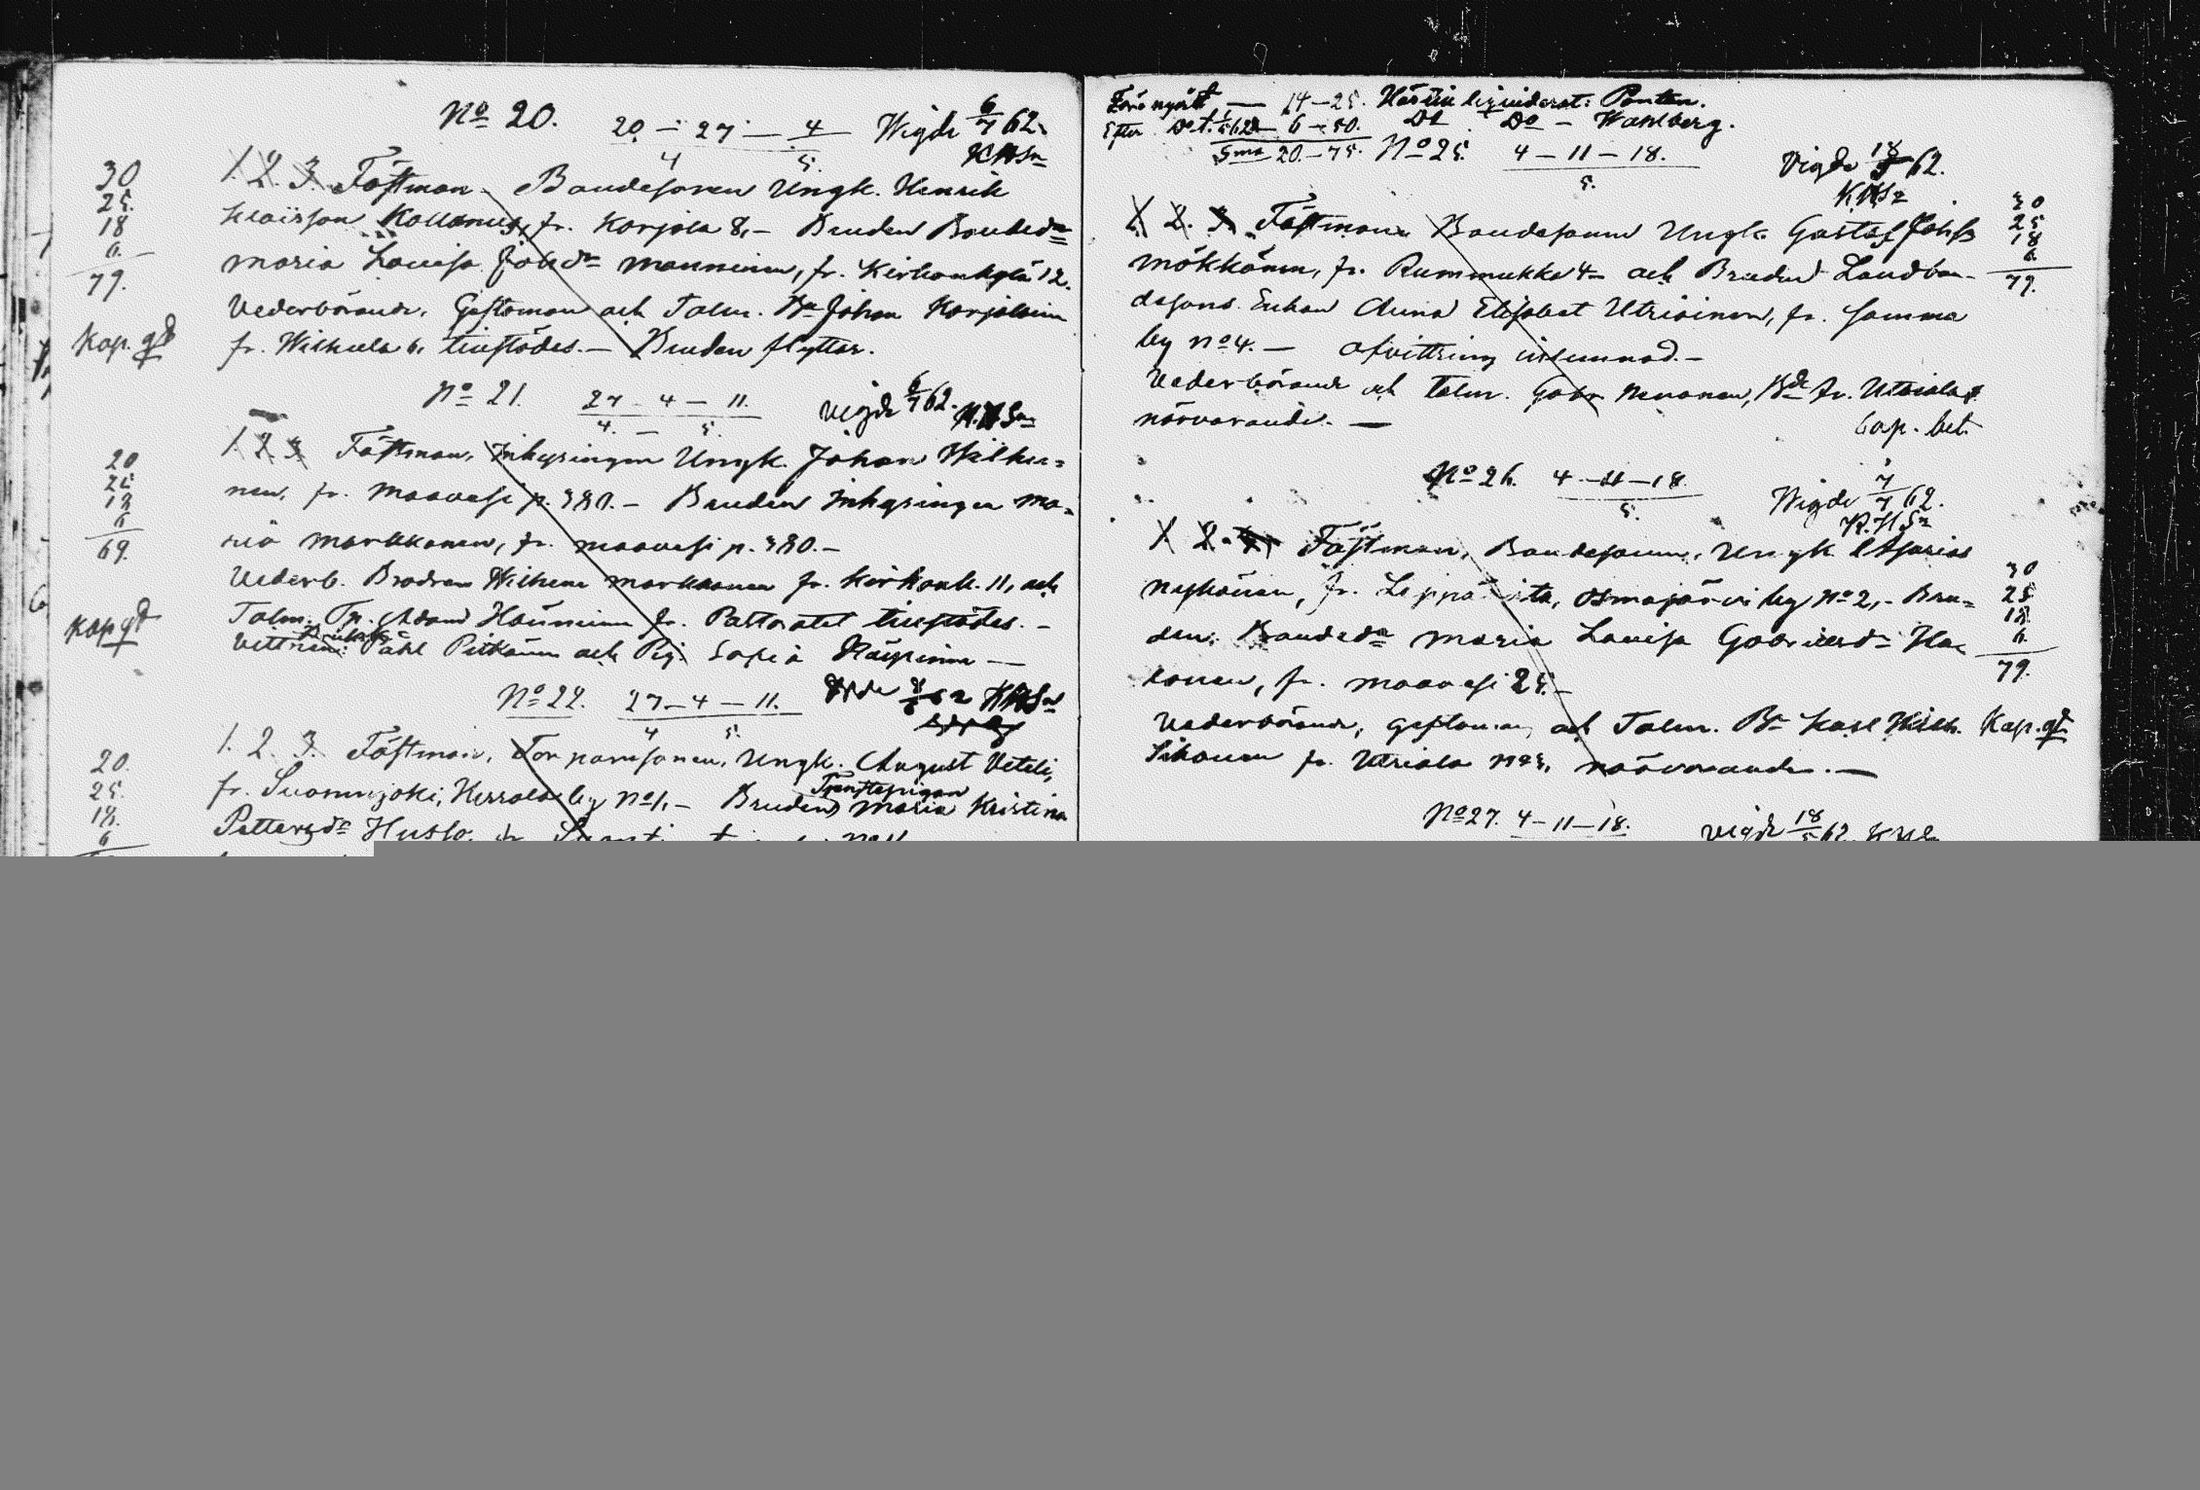 No 20. 20 – 27 – 4 Wigde 6/7 62.
4 5. KHSn
30
25.
18
6.
79.
Kap. gd
1. 2. 3. Fästman. Bondesonen Ungk. Henrik
Klaësson Kollanus, fr. Karjola 8, – Bruden Bonded:
Maria Lovisa Johd: Manninen, fr. Kirkonkylä 12.
Vederbörande, Giftoman och Talm. Bn Johan Karjalain
fr. Wihtula 6. tillstädes. – Bruden flyttar.
No 21. 27 – 4 – 11. Vigde 6/7 62. KHSn
4. – 5.
20
25
18
6
69.
kap gd
1 2 3 Fästman, Inhysingen Ungk. Johan
nen, fr. Maavesi p. 380. – Bruden Inhysingen Ma=
ria Markkanen, fr. Maavesi p. 380. –
Vederb. Brodren Wilhelm Markkanen fr. Kirkonk. 11, och
Talm. Tp. Adam Hänninen fr. Pastoratet tillstädes. –
Vittnen: Påhl Pitkänen och Pig. Sofia –
No 22. 27 – 4 – 11. 62 KHSn
4 5.
20.
25.
18.
6
1. 2. 3. Fästman, Torparesonen, Ungk. August Veteli,
fr. Suonnejoki, by No 1, – Bruden Tjenstepigan Maria Kristina
Pettersdr
14 – 25. liquiderat: Pontan.
Efter Do t. 6 – 50. Dt Do – Wahlberg.
Sma 20 – 75. No 25. 4 – 11 – 18. Vigde 18/5 62.
5. KHSn
1. 2. 3. Fästman Bondesonen Ungk. Gustaf Johss
Mökkönen, fr. Rummukka 4 – och Bruden Landbon-
desons Enkan Anna Elisabet Utriainen, fr. samma
by No 4. – Afvittring inlemnad. –
Vederbörande och Talm. Gabr Nenonen, Bde fr. Utriala
närvarande. – Cap. bet.
30
25
18
6.
79.
No 26. 4 – 11 – 18. Wigde 7/7 62.
5. K.H.Sn
1 2. Fästman, Bondesonen, Ungk Asarias
Nykänen, fr. Leppävirta, Osmajärvi by No 2, – Bru=
den: Bonded: Maria Lovisa Gabrielsd: Ha=
konen, fr. Maavesi 25. –
Vederbörande, giftoman, och Talm. Bn Karl Wilh.
Sikanen fr. Utriala No 5, närvarande. –
30
25
18.
6.
79.
Kap. gd
No 27. 4 – 11 – 18. Vigde 18/5 62.